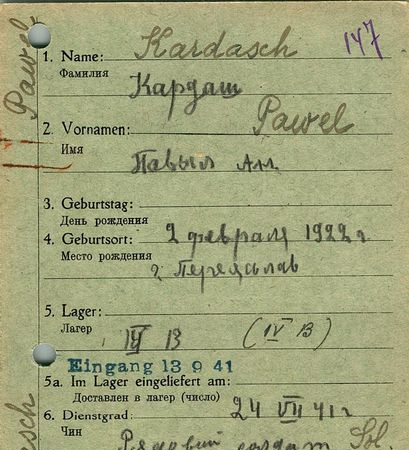 Pawel
147
1. Name: Kardasch
Фамилия
Кардаш
2. Vornamen: Pawel
Имя
Павыл
3. Geburtstag:
День рождения
4. Geburtsort: 2 февраля 1922 г
Место рождения
г. Переяслав
5. Lager:
Лагер IV B (IV B)
Eingang 13 9 41
5a. Im Lager eingeliefert am:
Доставлен в лагер (число)
6. Dienstgrad: 24 VII 41 г
Чин Рядовий солдат Sol